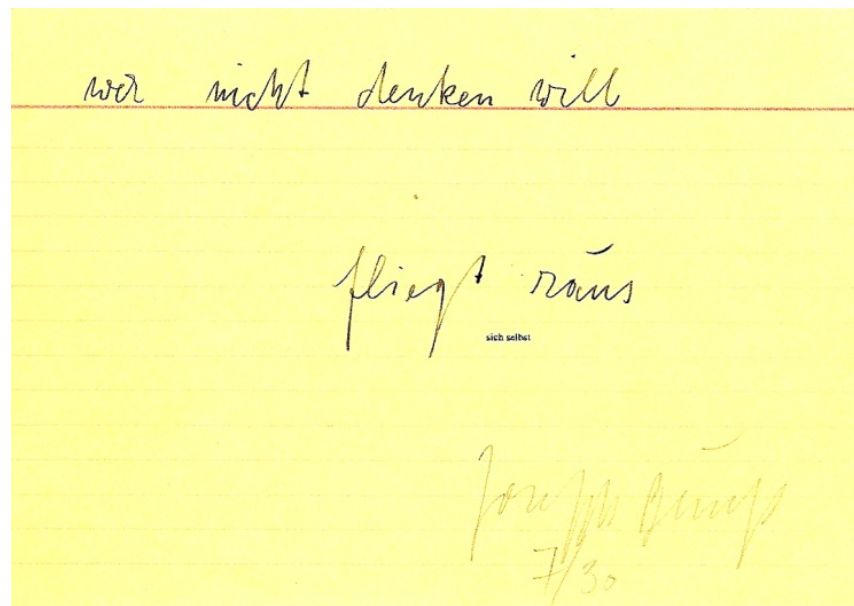 wer nicht denken will
fliegt raus
sich selbst
Joseph Beuys
7/30